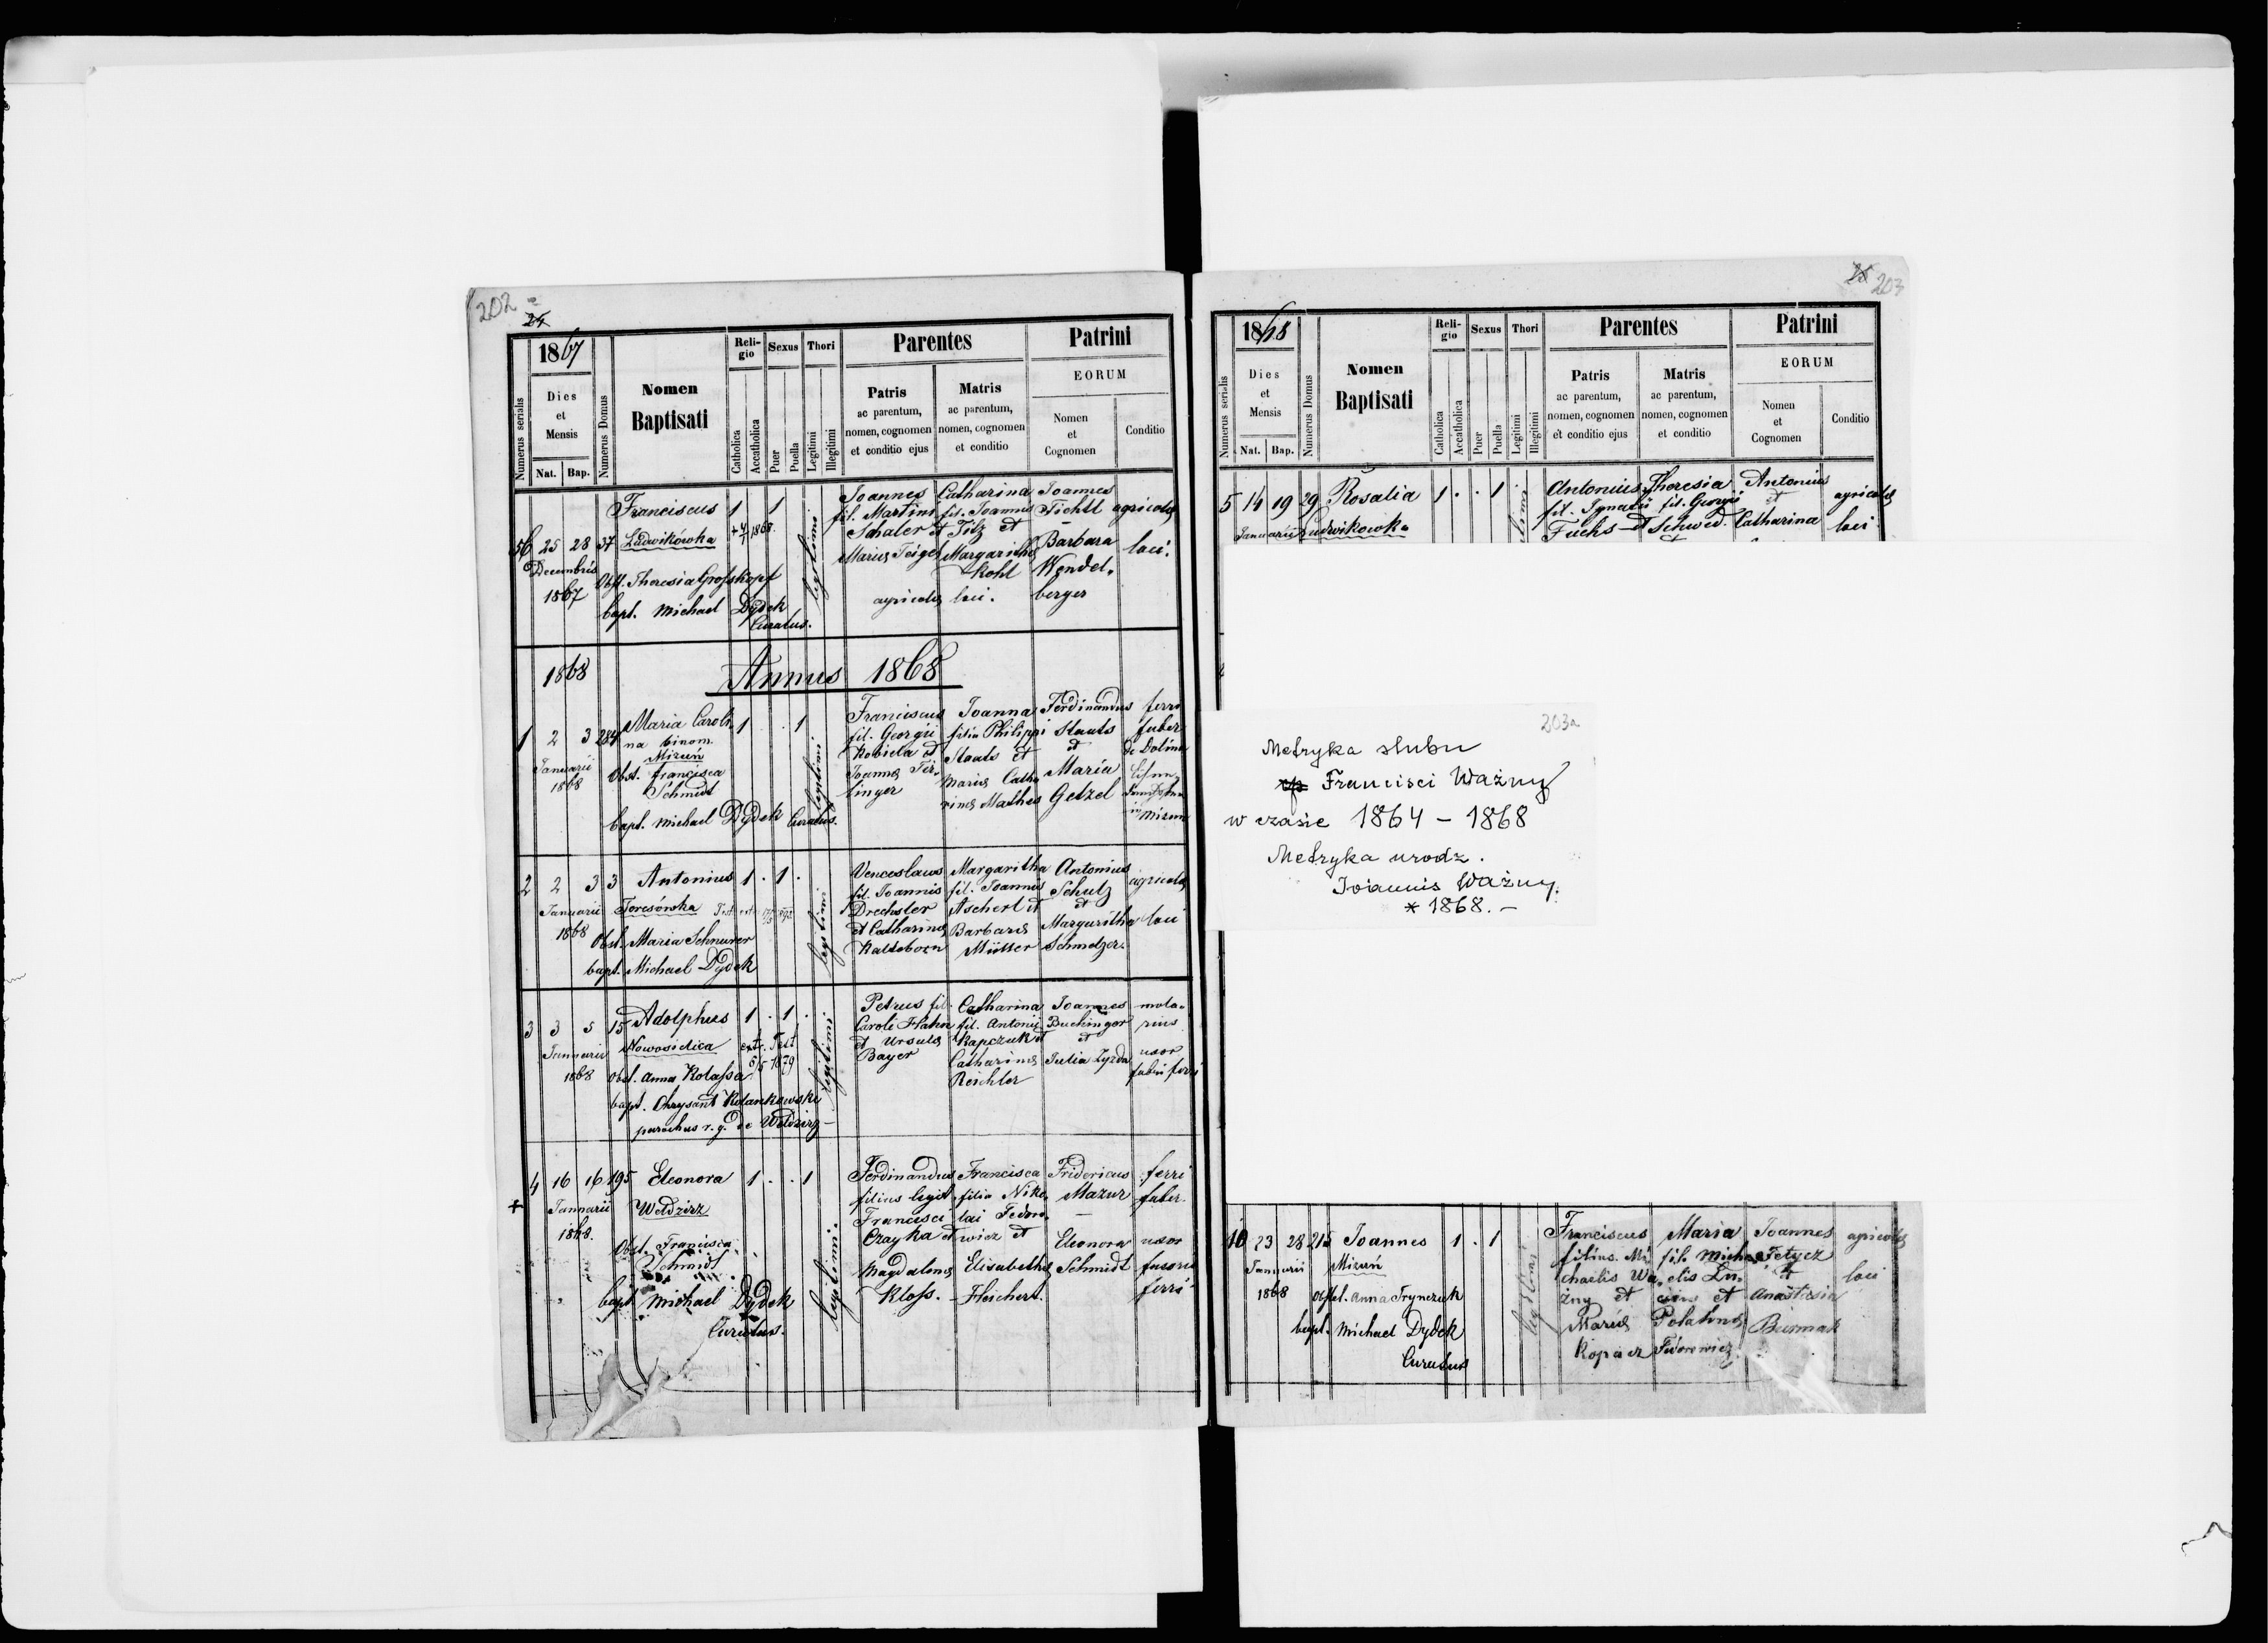 202
24
1867
Dies
et
Mensis
Nat. Bap.
Numerus serialis
Numerus Domus
Nomen
Baptisati
Reli-
gio
Catholica
Accatholica
Sexus
Puer
Puella
Thori
Legitimi
Illegitimi
Parentes
Patris
ac parentum,
nomen, cognomen
et conditio ejus
Matris
ac parentum,
nomen, cognomen
et conditio
Patrini
EORUM
Nomen
et
Cognomen
Conditio
56 25 28 37
Decembris
1867
Franciscus 1 1
Ludwikówka
Obst. Theresia Grosskopf
bapt. Michael Dydek
Curatus.
legitimi
Joannes
fil. Martini
Schaler et
Maria Feigel
Catharina
fil. Joannis
Tilz et
Margaritha
Kohl
agricola loci.
Joannes
Tichtl
Barbara
Wendel-
berger
agricola
loci.
1868
Annus 1868
1 2 3 284
Januarii
1868
Maria Caroli- 1 1
na binom.
Mizuń
Obst. Francisca
Schmidt
bapt. Michael Dydek Curatus.
legitimi
Franciscus
fil. Georgii
Kobiela et
Joanna
linger
Joanna
filia Philippi
Staats et
Maria Catha
rina Mathes
Ferdinandus
Staats
et
Maria
Getzel
ferri
faber
de Dolina
in Mizun
2 2 3 3
Januarii
1868
Antonius 1 . 1 .
Teresówka
Obst. Maria Schnurer
bapt. Michael Dydek
legitimi
Venceslaus
fil. Joannis
Drechsler
et Catharina
Kalteborn
Margaritha
fil. Joannis
Aschert et
Barbara
Müller
Antonius
Schulz
et
Margaritha
Schmelzer.
agricola
loci
3 3 5 15
Januarii
1868
Adolphus 1 . 1 .
Nowosielica
ext. Test
5/5 1879
Obst. Anna Kolassa
bapt. Chrysant Kolankowski
parochus r. g. de Weldzirz
legitimi
Petrus fil.
Caroli Hahn
et Ursula
Bayer
Catharina
fil. Antonii
Kapczuk et
Catharina
Reichler
Joannes
Buchinger
et
Julia Zyzda
mola-
rius
uxor
fabri ferri
4 16 16 195
Januarii
1868.
Eleonora 1 . . 1
Weldzirz
Obst. Francisca
Schmidt
bapt. Michael Dydek
Curatus.
legitimi.
Ferdinandus
filius legit.
Francisci
Czayka et
Magdalena
Kloss.
Francisca
filia Niko
lai Fedoro
wicz et
Elisabetha
Fleichert.
Fridericus
Mazur
Eleonora
Schmidt
ferri
faber
uxor
fusoris
ferri
203
1868
Dies
et
Mensis
Nat. Bap.
Numerus serialis
Numerus Domus
Nomen
Baptisati
Reli-
gio
Catholica
Accatholica
Sexus
Puer
Puella
Thori
Legitimi
Illegitimi
Parentes
Patris
ac parentum,
nomen, cognomen
et conditio ejus
Matris
ac parentum,
nomen, cognomen
et conditio
Patrini
EORUM
Nomen
et
Cognomen
Conditio
5 14 19 29
Januarii
Rosalia 1 . . 1
Ludwikowka
Antonius
fil. Ignatii
Fuchs et
Theresia
fil. Georgii
Schwed.
Antonius
et
Catharina
agricola
loci
203a
Metryka slubu
Francisci Ważny
w czasie 1864 - 1868
Metryka urodz.
Joannis Ważny.
* 1868. -
10 23 28 215
Januarii
1868
Joannes 1 . 1
Mizuń
Obstet. Anna Frynczuk
bapt. Michael Dydek
Curatus
legitimi
Franciscus
filius Mi
chaelis Wa
żny et
Maria
Kopacz
Maria
fil. Micha
elis Lu
cins et
Polahna
Fidorowicz
Joannes
Fetycz
et
Anastasia
Burmak
agricola
loci